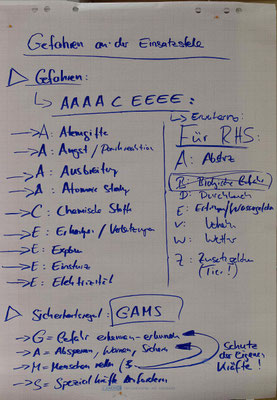 Gefahren an der Einsatzstelle
Gefahren:
AAAA C EEEE:
A: Atemgifte
A: Angst / Panikreaktion
A: Ausbreitung
A: Atomare
C: Chemische Stoffe
E: Erkrankung / Verletzungen
E: Explosion
E: Einsturz
E: Elektrizität
Erweiterung
Für RHS:
A: Absturz
B: Biologische
D: Durchbruch
E: Ertrinken /
V: Verkehr
W: Wetter
Z: Zusatzgefahren
(Tier!)
GAMS
G = Gefahr erkennen
A = Absperren, Warnen, Sichern
M = Menschen retten /
S = Spezialkräfte Anfordern
Schutz
der Eigenen
Kräfte!